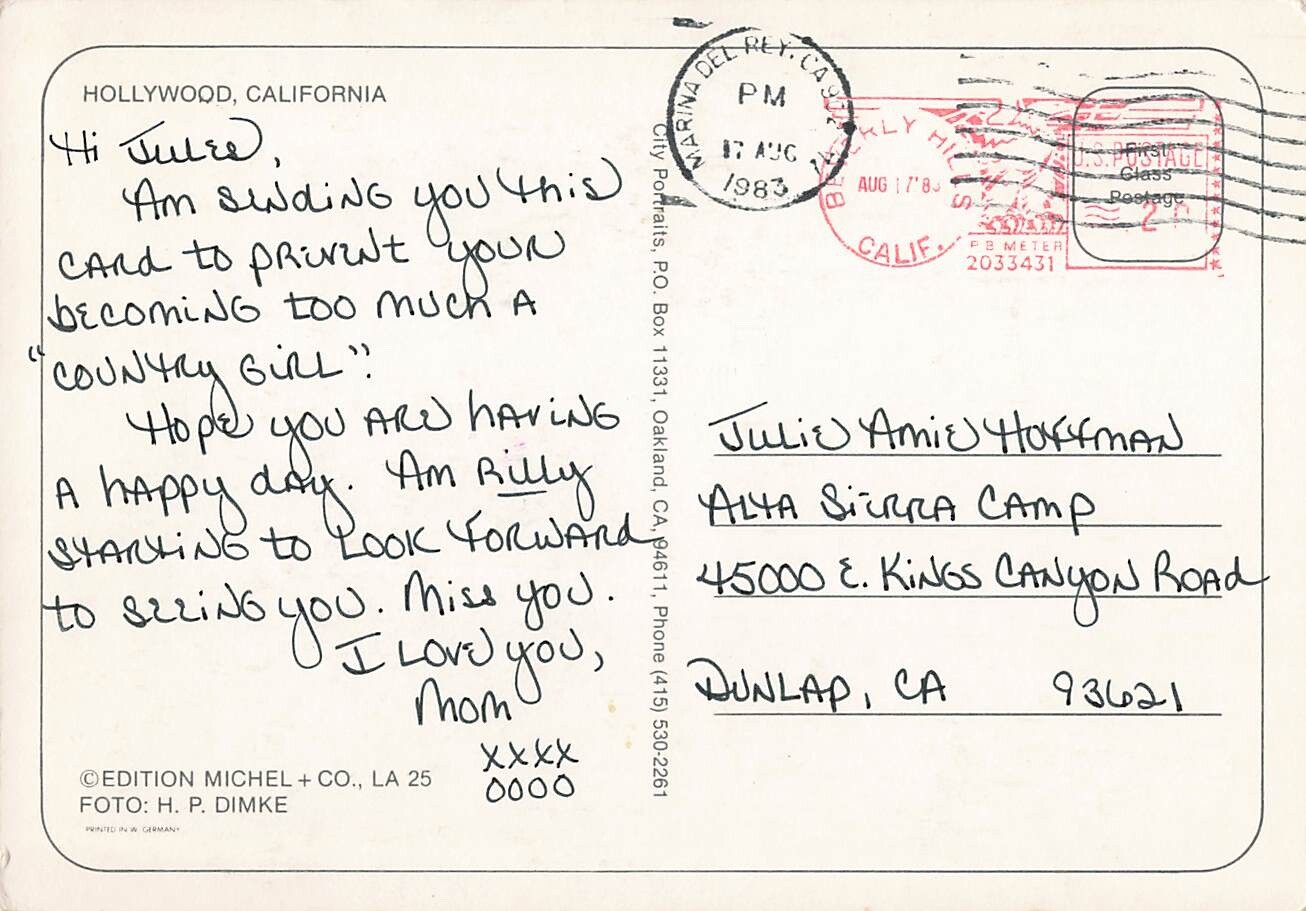 HOLLYWOOD, CALIFORNIA
Hi Julie,
Am sending you this
card to prevent your
becoming too much a
"country girl".
Hope you are having
a happy day. Am rilly
starting to look forward
to seeing you. Miss you.
I love you,
Mom
XXXX
OOOO
©EDITION MICHEL + CO., LA 25
FOTO: H. P. DIMKE
PRINTED IN W. GERMANY
City Portraits, P.O. Box 11331, Oakland, CA, 94611, Phone (415) 530-2261
MARINA DEL REY, CA
PM
17 AUG
1983
BEVERLY HILLS
AUG 17 '83
CALIF.
P B METER
2033431
U.S. POSTAGE
First
Class
Postage
Julie Amie Hoffman
Alta Sierra Camp
45000 E. Kings Canyon Road
Dunlap, CA 93621